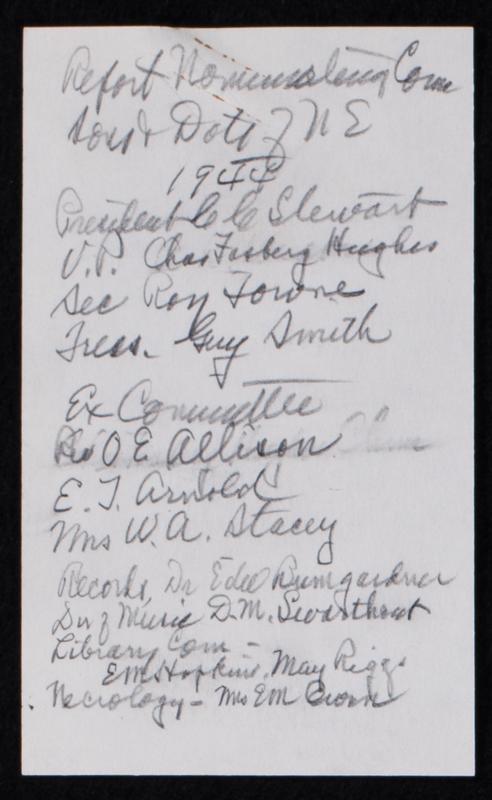 Report Nominating Com
Sons & Dots of N E
1944
President C C Stewart
V.P. Chas Fosberg Hughes
Sec Roy Towne
Treas. Guy Smith
Ex Committee
O E Allison
E. T. Arnold
Mrs W. A. Stacey
Records, Dr Edw Bumgardner
Dir of Music D. M. Swarthout
Library Com -
E M Hopkins, May Riggs
Necrology - Mrs E M